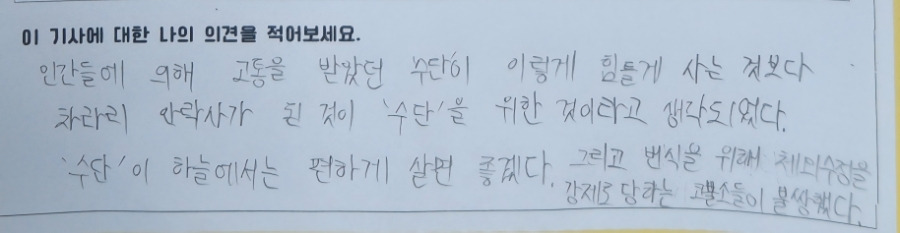 이 기사에 대한 나의 의견을 적어보세요.
인간들에 의해 고통을 받았던 '수단'이 이렇게 힘들게 사는 것보다
차라리 안락사가 된 것이 '수단'을 위한 것이라고 생각되었다.
'수단'이 하늘에서는 편하게 살면 좋겠다. 그리고 번식을 위해 체외수정을
강제로 당하는 코뿔소들이 불쌍했다.